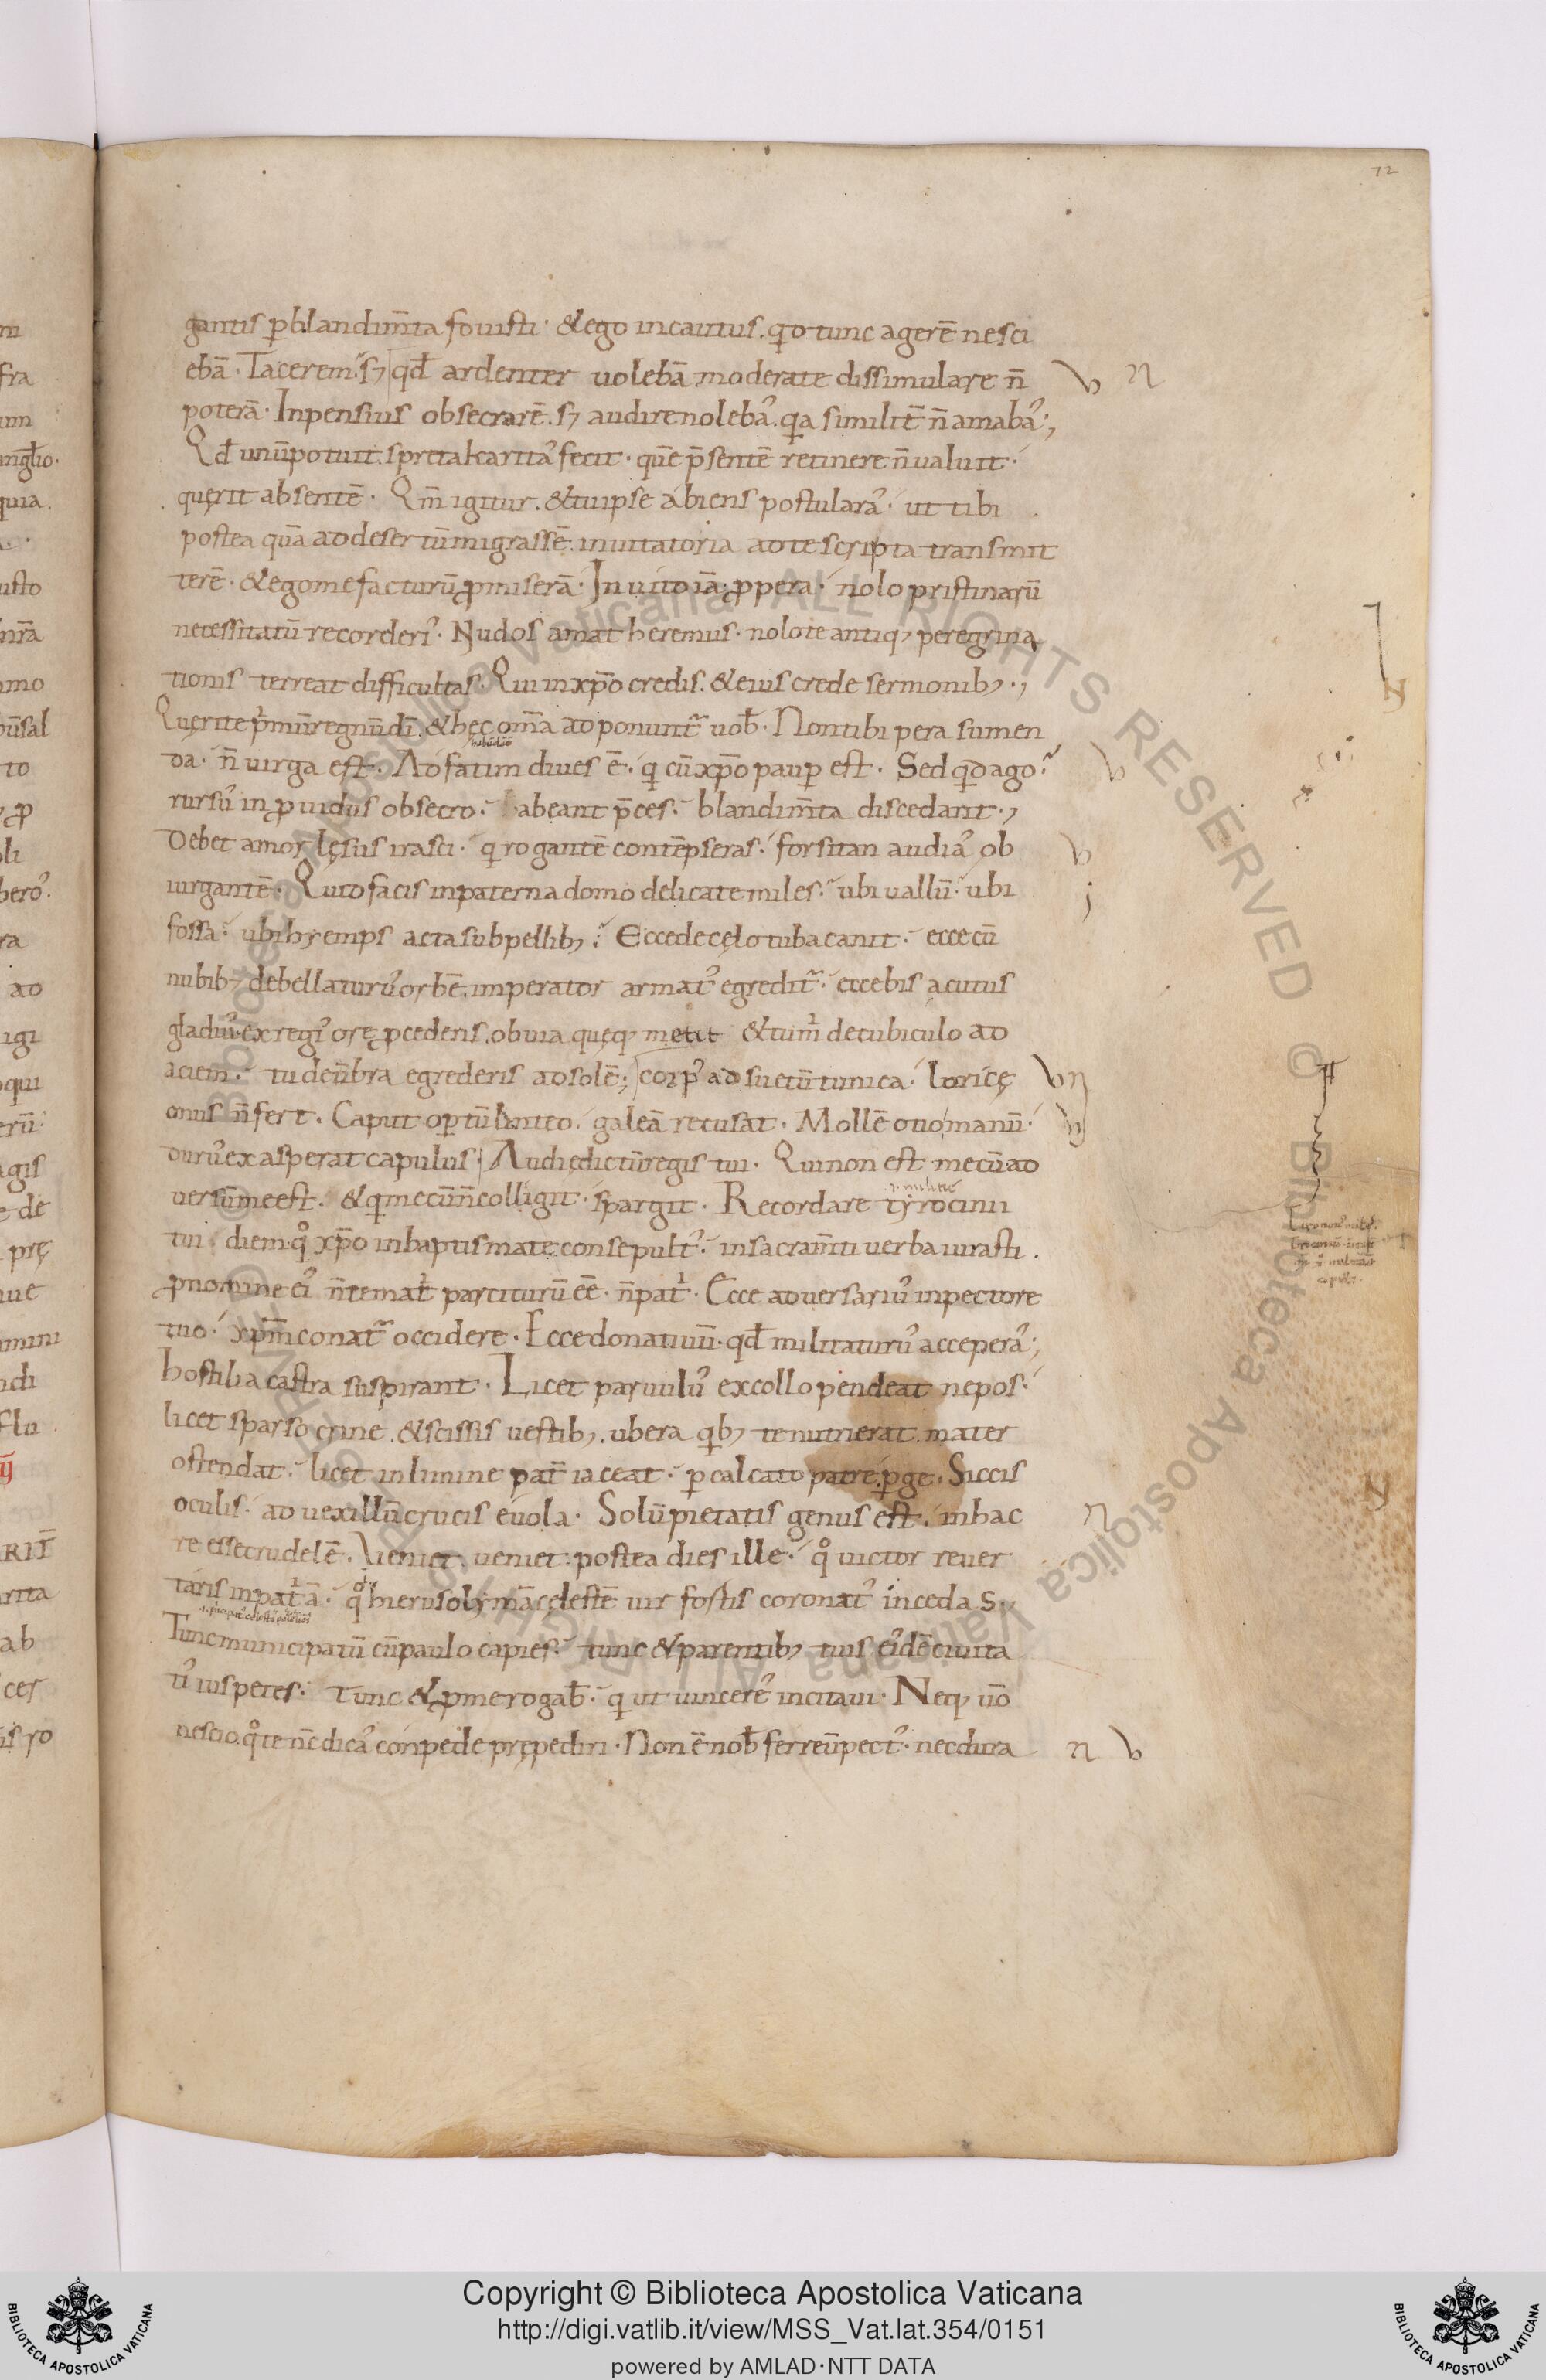 72
gantis p blandim̄ta fouisti· & ego incautus. qd tunc agerē nesci
ebā· Tacerem· s; qđ ardenter uolebā moderate dissimulare n̄
poterā· Inpensius obsecrarē. s; audire nolebaʼ. qa similit̄ n̄ amabaʼ;
Qđ unū potuit spreta karitaʼ fecit· quē p̄sentē retinere n̄ ualuit·
querit absentē· Qm̄ igitur. & tu ipse abiens postularaʼ· ut tibi
postea quā ad desertū migrassē. inuitatoria ad te scripta transmit
terē· & ego me facturū ꝓmiserā· Inuito iā; ꝓpera· nolo pristinarū
necessitatū recorderiʼ· Nudos amat heremus· nolo te antiq; peregrina
tionis terreat difficultas· Qui in xp̄o credis. & eius crede sermonib;·,
Querite p̄mū regnū dī. & hęc om̄a adponunt̃ uob̄· Non tibi pera sumen
da· n̄ uirga est· Adfatim diues ē· q cū xp̄o paup est· Sed qd ago·
rursuʼ inꝓuidus obsecro· abeant p̄ces· blandim̄ta discedant·,
Debet amor lęsus irasci· q rogantē contēpseras· forsitan audiaʼ ob
iurgantē· Quid facis in paterna domo delicate miles· ubi uallū· ubi
fossa· ubi hyemps acta sub pellib;· Ecce de cęlo tuba canit· ecce cū
nubib; debellaturuʼ orbē. imperator armatʼ egredit̃· ecce bis acutus
gladiuʼ ex regiʼ ore ꝓcedens. obuia queq; metit & tu m̄ de cubiculo ad
aciem· tu de ūbra egrederis ad solē; corpʼ adsuetū tunica· loricę
onus n̄ fert· Caput optū linteo· galeā recusat· Mollē otio manū·
duruʼ exasperat capulus· Audi edictū regis tui· Qui non est mecū ad
uersū me est· & q mecū n̄ colligit· spargit· Recordare tyrocinii
tui diem· qͦ xp̄o in baptismate consepultʼ· in sacram̄ti uerba iurasti.
ꝓ nomine eiʼ n̄ te mat̄ partiturū eē· n̄ pat̄· Ecce aduersariuʼ in pectore
tuo· xp̄m conat̃ occidere· Ecce donatiuū· qđ militaturuʼ acceperaʼ;
hostilia castra suspirant· Licet paruuluʼ ex collo pendeat nepos·
licet sparso crine. & scissis uestib;. ubera qb; te nutrierat mater
ostendat· licet in limine pat̄ iaceat· p calcato patre. pge. Siccis
oculis· ad uexillū crucis euola· Solū pietatis genus est· in hac
re esse crudelē· Veniet. ueniet postea dies ille· qͦ uictor reuer
taris in pat̄ā· qͦ hierusolymā cęlestē uir fortis coronatʼ incedas·,
Tunc municipatū cū paulo capies· tunc & parentib; tuis eiʼdē ciuita
tiʼ ius petes· Tunc & ꝓ me rogab̄· q ut uincereʼ incitaui· Neq; uō
nescio. qͦ te nc̄ dicaʼ conpede prępediri· Non ē nob̄ ferreū pectʼ· nec dura
Copyright © Biblioteca Apostolica Vaticana
http://digi.vatlib.it/view/MSS_Vat.lat.354/0151
powered by AMLAD·NTT DATA